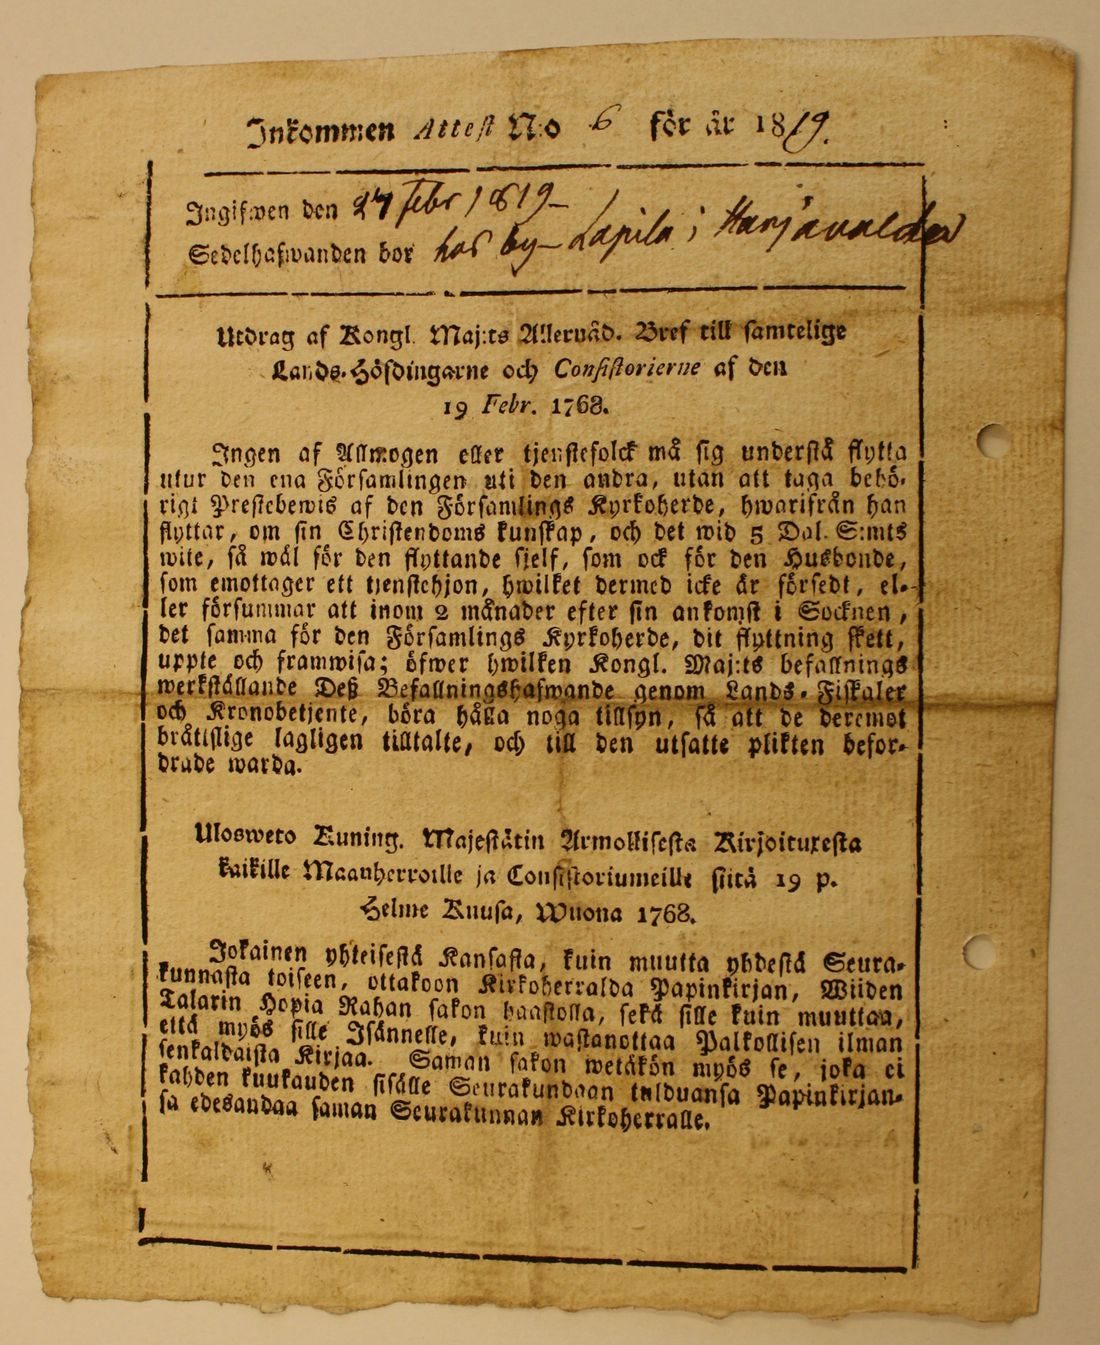 Inkommen Attest N:o 6 för år 1819.
Ingifwen den 27 Febr 1819
Sedelhafwanden bor hos by Lapila i Harjavalda
Utdrag af Kongl. Maj:ts Allernåd. Bref till samtelige
Lands-Höfdingarne och Consistorierne af den
19 Febr. 1768.
Ingen af Allmogen eller tjenstefolck må sig understå flytta
utur den ena Församlingen uti den andra, utan att taga behö-
rigt Prestebewis af den Församlings Kyrkoherde, hwarifrån han
flyttar, om sin Christendoms kunskap, och det wid 5 Dal. S:mts
wite, så wäl för den flyttande sjelf, som ock för den Husbonde,
som emottager ett tjenstehjon, hwilket dermed icke är försedt, el-
ler försummar att inom 2 månader efter sin ankomst i Socknen,
det samma för den Församlings Kyrkoherde, dit flyttning skett,
uppte och framwisa; öfwer hwilken Kongl. Maj:ts befallnings
werkställande Deß Befallningshafwande genom Lands-Fiskaler
och Kronobetjente, böra hålla noga tillsyn, så att de deremot
bråtislige lagligen tilltalte, och till den utsatte plikten befor-
drade warda.
Ulosweto Kuning. Majestätin Armollisesta Kirjoituxesta
kaikille Maanherroille ja Consistoriumeille siitä 19 p.
Helme Kuusa, Wuona 1768.
Jokainen yhteisestä Kansasta, kuin muutta yhdestä Seura-
kunnasta toiseen, ottakoon Kirkoherralda Papinkirjan, Wiiden
Talarin Hopia Rahan sakon haastolla, sekä sille kuin muuttaa,
että myös sille Isännelle, kuin wastanottaa Palkollisen ilman
senkaldaista Kirjaa. Saman sakon wetäkön myös se, joka ei
kahden kuukauden sisälle Seurakundaan tulduansa Papinkirjan-
sa edesandaa saman Seurakunnan Kirkoherralle.